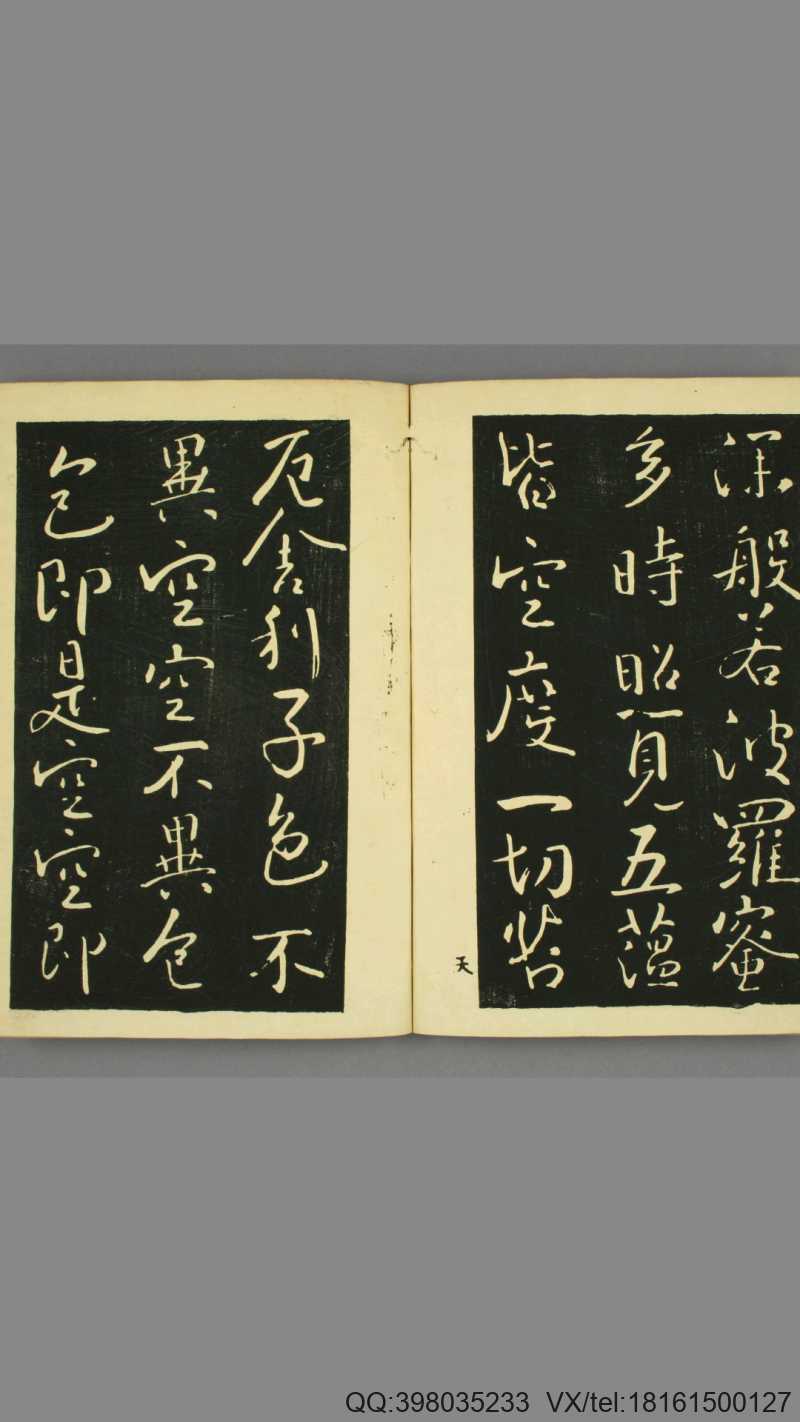 深般若波羅蜜
多時照見五蘊
皆空度一切苦
天
厄舍利子色不
異空空不異色
色即是空空即
QQ:398035233 VX/tel:18161500127